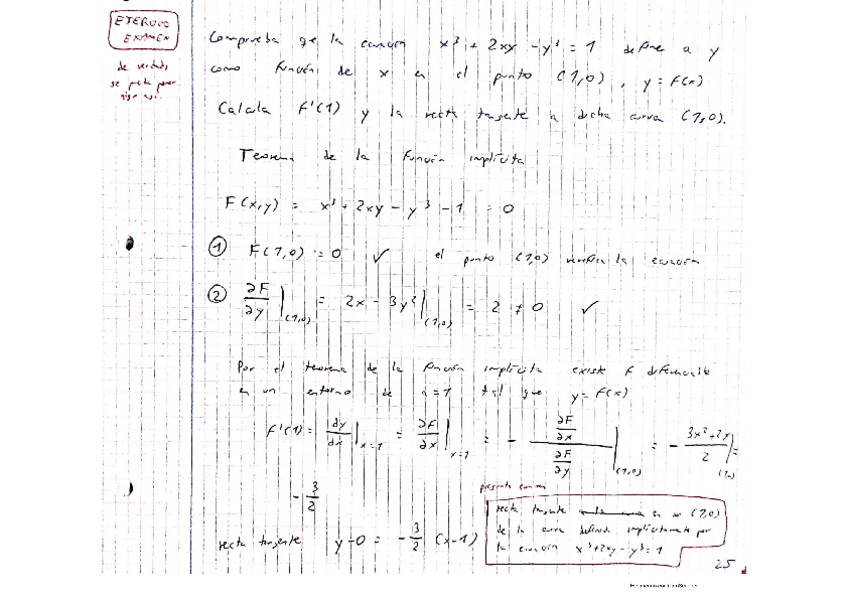 ETERNO
EXAMEN
de verdad
se puede poner
Comprueba que la ecuación x³ + 2xy - y³ = 1 define a y
como función de x en el punto (1,0), y = f(x)
Calcula f'(1) y la recta tangente a dicha curva (1,0).
Teorema de la función implícita
F(x,y) = x³ + 2xy - y³ - 1 = 0
① F(1,0) = 0 ✓ el punto (1,0) verifica la ecuación
② ∂F/∂y |(1,0) = 2x - 3y² |(1,0) = 2 ≠ 0 ✓
Por el teorema de la función implícita existe f diferenciable
en un entorno de x=1 tal que y = f(x)
f'(1) = dy/dx |x=1 = ∂F/∂x |x=1 = - (∂F/∂x)/(∂F/∂y) |(1,0) = - (3x²+2y)/2 |(1,0) =
- 3/2
recta tangente y-0 = -3/2 (x-1)
recta tangente en (1,0)
de la curva definida implícitamente por
la ecuación x³+2xy-y³=1
25